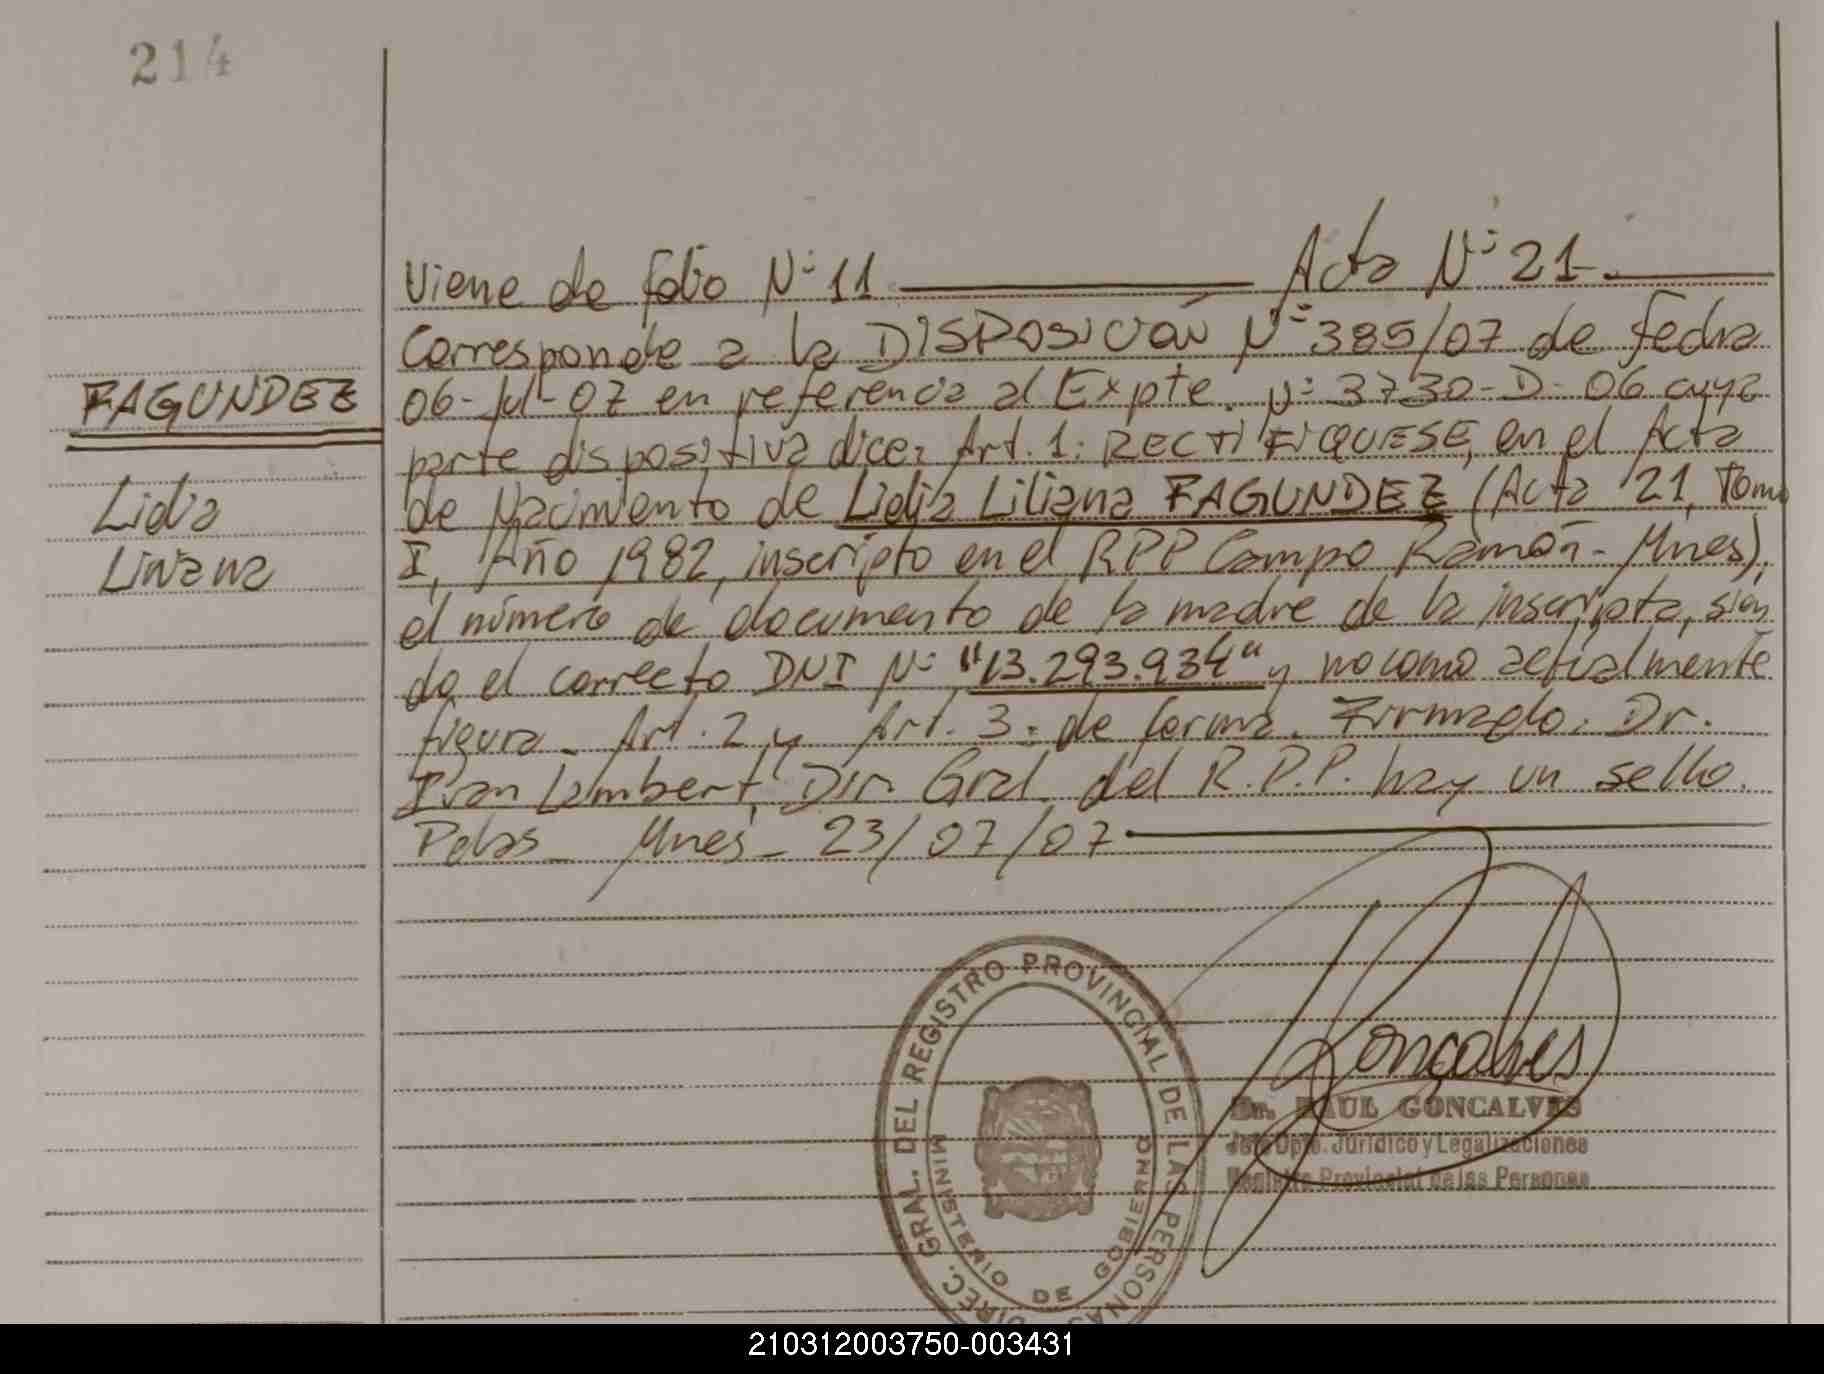 214
Viene de folio Nº 11 Acta Nº 21.
Corresponde a la DISPOSICIÓN Nº 385/07 de fecha
06-Jul-07 en referencia al Expte. Nº 3730-D-06 cuya
parte dispositiva dice: Art. 1: RECTIFIQUESE, en el Acta
de Nacimiento de Lidia Liliana FAGUNDEZ (Acta 21, Tomo
I, Año 1982, inscripto en el RPP Campo Ramón - Mnes),
el número de documento de la madre de la inscripta, sien
do el correcto DNI Nº "13.293.934" y no como actualmente
figura. Art. 2 y Art. 3: de forma. Firmado: Dr.
Ivan Lambert, Dir. Gral. del R.P.P. hay un sello.
Pdas - Mnes - 23/07/07
FAGUNDEZ
Lidia
Liliana
Goncalves
Dr. RAUL GONCALVES
Jefe Dpto. Jurídico y Legalizaciones
Registro Provincial de las Personas
DIREC. GRAL. DEL REGISTRO PROVINCIAL DE LAS PERSONAS
MINISTERIO DE GOBIERNO
210312003750-003431